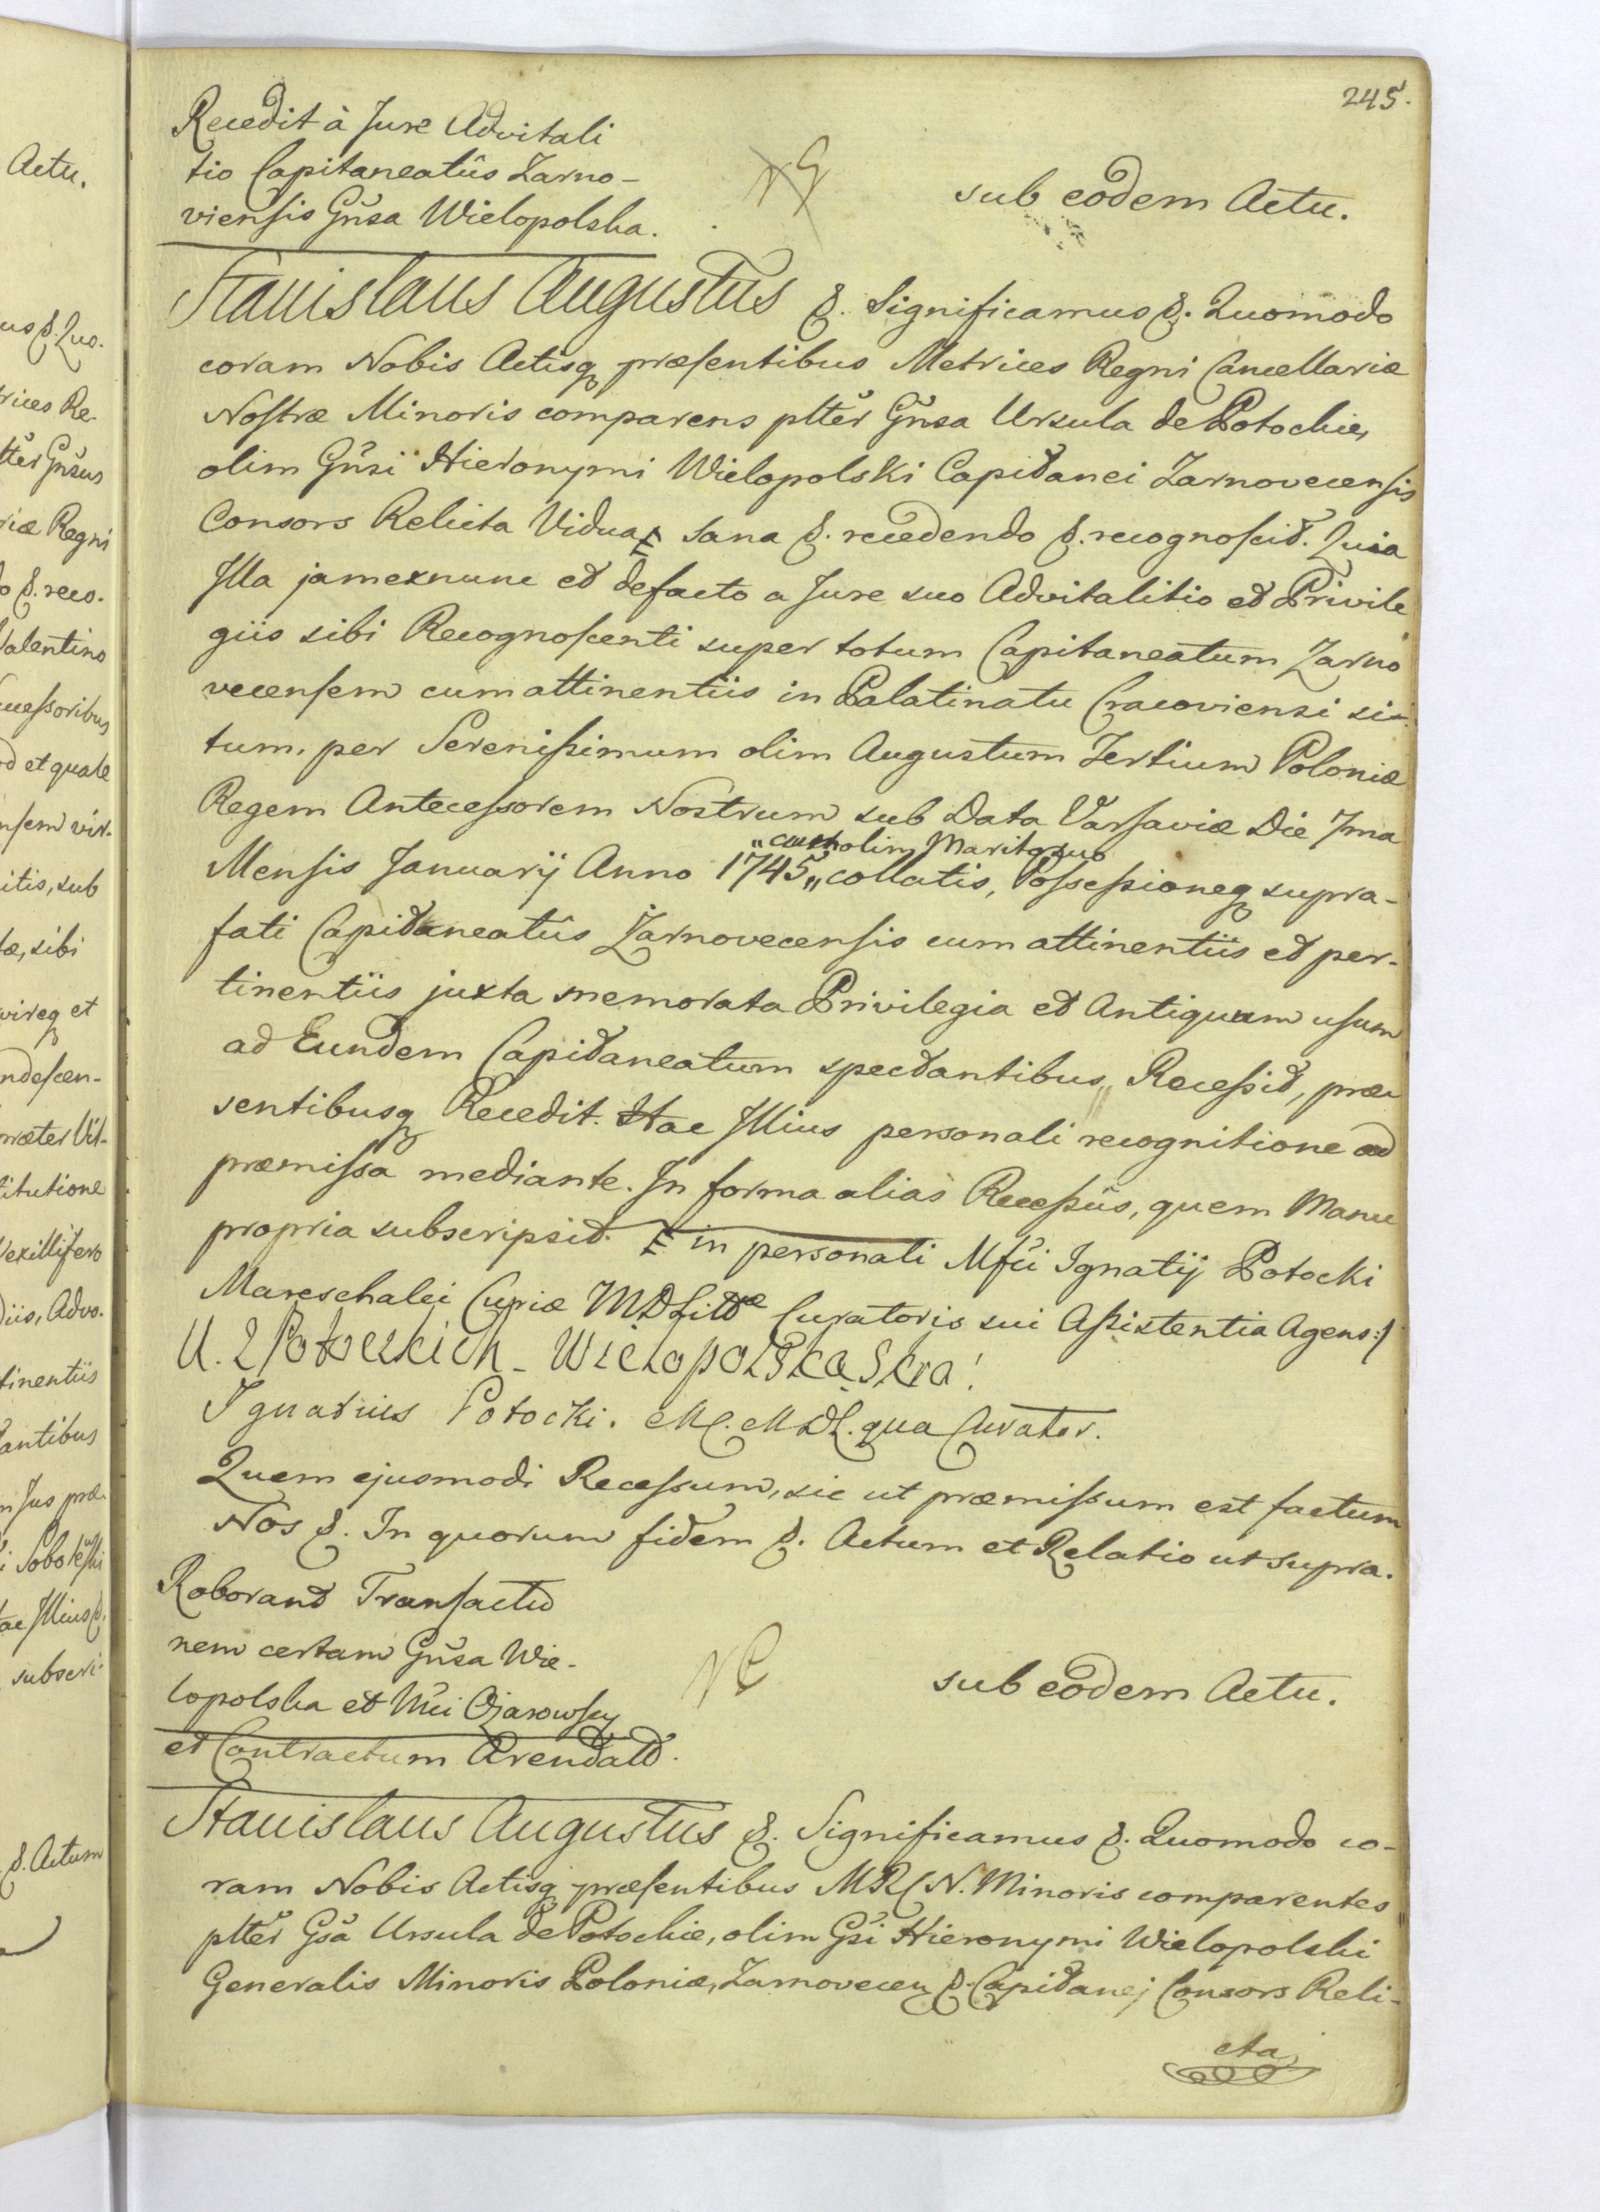 245.
Recedit à Jure Advitali
tio Capitaneatûs Zarno-
viensis Gnsa Wielopolska.
sub eodem Actu.
Stanislaus Augustus &. Significamus &. Quomodo
coram Nobis Actisq præsentibus Metrices Regni Cancellariæ
Nostræ Minoris comparens pltter Gnsa Ursula de Potockie,
olim Gnsi Hieronymi Wielopolski Capitanei Zarnovecensis
Consors Relicta Vidua E sana &. recedendo &. recognoscit. Quia
Illa jamexnunc et defacto a Jure suo Advitalitio et Privile
giis sibi Recognoscenti super totum Capitaneatum Zarno
vecensem cum attinentiis in Palatinatu Cracoviensi si-
tum, per Serenissimum olim Augustum Tertium Poloniæ
Regem Antecessorem Nostrum sub Data Varsaviæ Die 7ma
„ olim Marito suo
Mensis Januarij Anno 1745 „ collatis, Possessioneq supra-
fati Capitaneatûs Żarnovecensis cum attinentiis et per-
tinentiis juxta memorata Privilegia et Antiquum usum
ad Eundem Capitaneatum spectantibus „ Recessit, præ
sentibusq Recedit. Hac Illius personali recognitione ad
præmissa mediante. In forma alias Recessûs, quem Manu
propria subscripsit. E in personali Mfci Ignatij Potocki
Mareschalci Curiæ MDLittæ Curatoris sui Assistentia Agens :/
U. z Potockich - Wielopolska Skra!
Ignatius Potocki. MC. MDL. qua Curator.
Quem ejusmodi Recessum, sic ut præmissum est factum
Nos &. In quorum fidem &. Actum et Relatio ut supra.
Roborant Transactio
nem certam Gnsa Wie-
lopolska et Mci Ożarowscy
et Contractum Arendatt.
sub eodem Actu.
Stanislaus Augustus &. Significamus &. Quomodo co-
ram Nobis Actisq præsentibus MRCN. Minoris comparentes
pltter Gsa Ursula de Potockie, olim Gsi Hieronymi Wielopolski
Generalis Minoris Poloniæ, Zarnovecen &. Capitanej Consors Reli-
cta